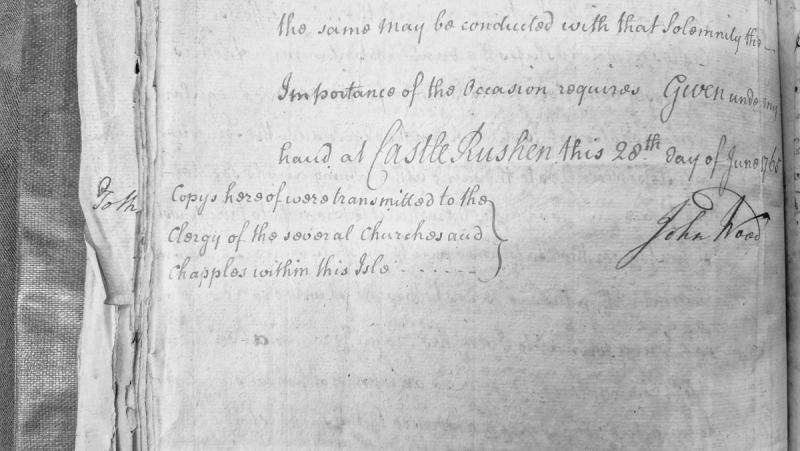 the same may be conducted with that Solemnity the
Importance of the Occasion requires Given under my
hand at Castle Rushen this 28th day of June 1765
Copys hereof were transmitted to the
Clergy of the several Churches and
Chapples within this Isle . . . . . .
John Wood